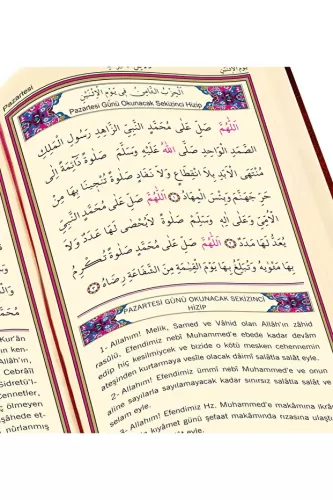 Pazartesi
اَلْحِزْبُ الثَّامِنُ فِي يَوْمِ الْاِثْنَيْنِ
Pazartesi Günü Okunacak Sekizinci Hizip
اَللّٰهُمَّ صَلِّ عَلٰى مُحَمَّدٍ النَّبِيِّ الزَّاهِدِ رَسُولِ الْمَلِكِ
الصَّمَدِ الْوَاحِدِ صَلَّى اللّٰهُ عَلَيْهِ وَسَلَّمَ صَلٰوةً دَٓائِمَةً اِلٰى
مُنْتَهَى الْاَبَدِ بِلَا انْقِطَاعٍ وَلَا نَفَادٍ صَلٰوةً تُنْجِينَا بِهَا مِنْ
حَرِّ جَهَنَّمَ وَبِئْسَ الْمِهَادُ اَللّٰهُمَّ صَلِّ عَلٰى مُحَمَّدٍ النَّبِيِّ
الْاُمِّيِّ وَعَلٰى اٰلِهِ وَسَلِّمْ صَلٰوةً لَا يُحْصٰى لَهَا عَدَدٌ وَلَا
يُعَدُّ لَهَا مَدَدٌ اَللّٰهُمَّ صَلِّ عَلٰى مُحَمَّدٍ صَلٰوةً تُكْرِمُ
بِهَا مَثْوٰيهُ وَتُبَلِّغُ بِهَا يَوْمَ الْقِيٰمَةِ مِنَ الشَّفَاعَةِ رِضَاهُ
PAZARTESİ GÜNÜ OKUNACAK SEKİZİNCİ
HİZİP
1- Allahım! Melik, Samed ve Vâhid olan Allâh'ın zâhid
rasûlü, Efendimiz nebî Muhammed'e ebede kadar devâm
edip hiç kesilmiyecek ve bizide o kötü mesken cehennemin
ateşinden kurtarmaya vesile olacak dâimî salâtla salât eyle.
2- Allahım! Efendimiz ümmî nebî Muhammed'e ve onun
aline sayılarla sayılamayacak kadar sınırsız salâtla salât ve
selam eyle.
Allahım! Efendimiz Hz. Muhammed'e makâmına ikrâ
kıyâmet günü şefaat makâmında rızasına ulaştı
Kur'ân
ın ken-
Cebrâîl
Sidretü'l-
Cennetler,
ç ölmeyen
şâhede et-
nûrlanmış